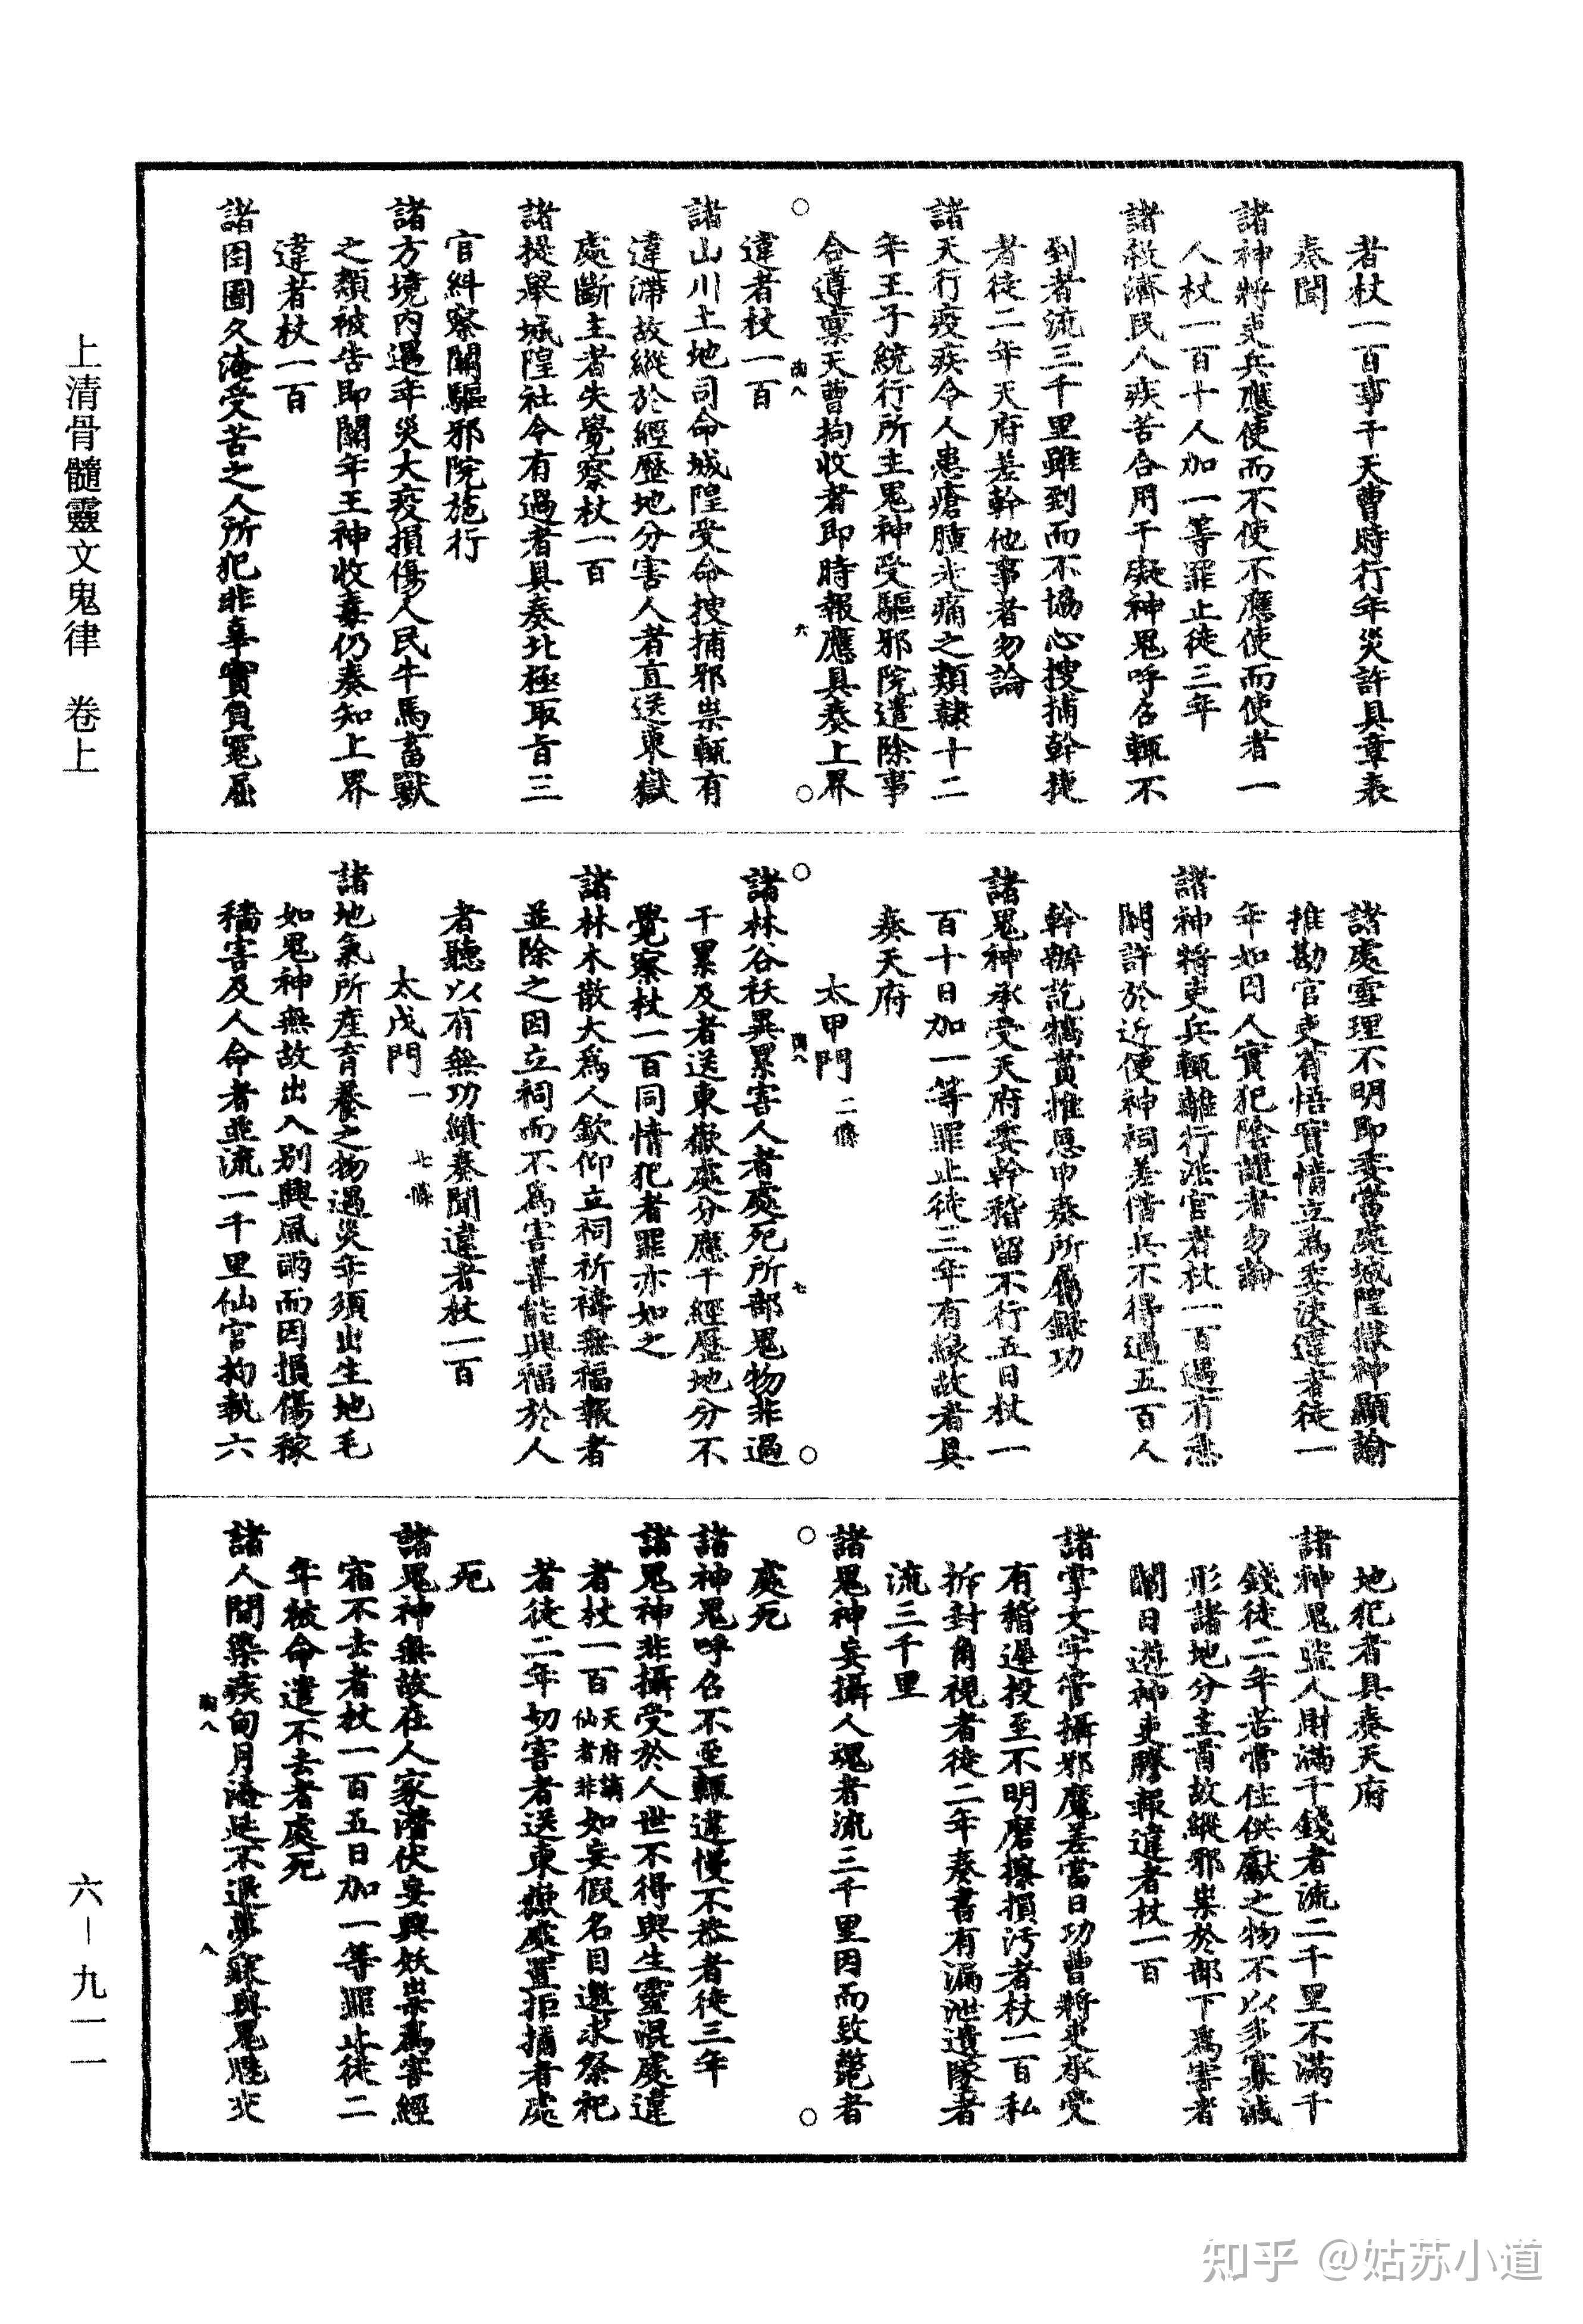 者杖一百事干天曹時行年災許具章表
奏聞
諸神將吏兵應使而不使不應使而使者一
人杖一百十人加一等罪止徒三年
諸救濟民人疾苦合用干礙神鬼呼召輒不
到者流三千里雖到而不協心搜捕幹捷
者徒二年天府差幹他事者勿論
諸天行疫疾令人患瘡腫走痛之類隸十二
年王子統行所主鬼神受驅邪院遣除事
合遵稟天曹拘收者即時報應具奏上界
違者杖一百
諸山川土地司命城隍受命搜捕邪祟輒有
違滯故縱於經歷地分害人者直送東嶽
處斷主者失覺察杖一百
諸提舉城隍社令有過者具奏北極取旨三
官糾察關驅邪院施行
諸方境內遇年災大疫損傷人民牛馬畜獸
之類被告即關年王神收毒仍奏知上界
違者杖一百
諸囹圄久淹受苦之人所犯非辜實負冤屈
諸處雪理不明即委當處城隍獄神顯諭
推勘官吏有悟實情立為委決違者徒一
年如因人實犯陰譴者勿論
諸神將吏兵輒離行法官者杖一百遇有急
關許於近便神祠差借兵不得過五百人
幹辦訖犒賞推恩申奏所屬錄功
諸鬼神承受天府委幹稽留不行五日杖一
百十日加一等罪止徒三年有緣故者具
奏天府
太甲門二條
諸林谷袄異累害人者處死所部鬼物非過
干累及者送東嶽處分應干經歷地分不
覺察杖一百同情犯者罪亦如之
諸林木散大為人欽仰立祠祈禱無福報者
並除之因立祠而不為害善能興福於人
者聽以有無功績奏聞違者杖一百
太戊門一七條
諸地氣所產育養之物遇災年須出生地毛
如鬼神無故出入別興風雨而因損傷稼
穡害及人命者並流一千里仙官拘執六
地犯者具奏天府
諸神鬼盜人財滿千錢者流二千里不滿千
錢徒二年若常住供獻之物不以多寡減
形諸地分主首故縱邪祟於部下為害者
關日遊神吏牒報違者杖一百
諸掌文字管攝邪魔差當日功曹將吏承受
有稽遲投至不明磨擦損污者杖一百私
拆封角視者徒二年奏書有漏泄遺墜者
流三千里
諸鬼神妄攝人魂者流三千里因而致斃者
處死
諸神鬼呼召不至輒違慢不恭者徒三年
諸鬼神非攝受於人世不得與生靈混處違
者杖一百天府謫仙者非如妄假名目邀求祭祀
者徒二年切害者送東嶽處置拒捕者處
死
諸鬼神無故在人家潛伏妄興妖祟為害經
宿不去者杖一百五日加一等罪止徒二
年被命遣不去者處死
諸人間染疾旬月淹延不退夢寐與鬼魅交
上清骨髓靈文鬼律 卷上
六－九一一
知乎 @姑苏小道